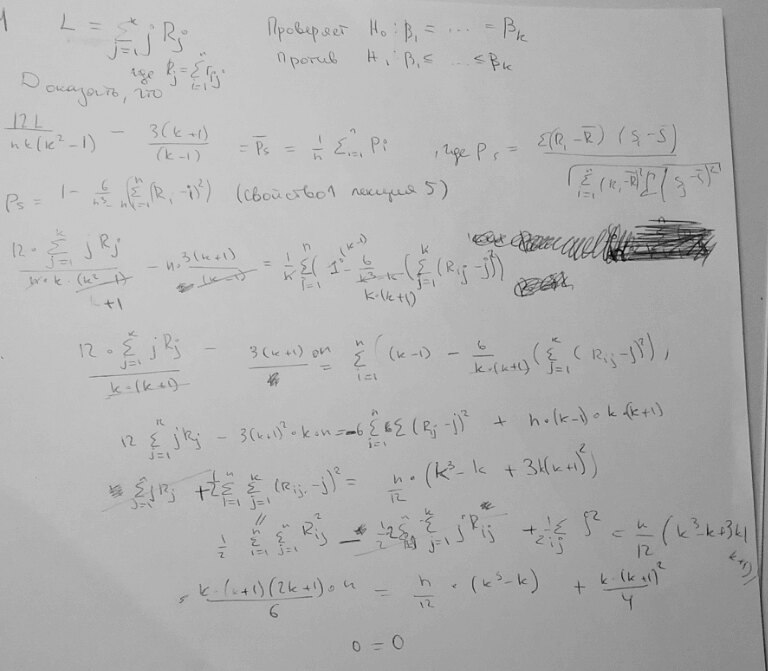 1 L = Σ_{j=1}^{k} j R_j Проверяет H₀: β₁ = ... = β_k
где R_j = Σ_{i=1}^{n} r_{ij} против H₁: β₁ ≤ ... ≤ β_k
Доказать, что
12L / (nk(k²-1)) - 3(k+1) / (k-1) = ρ̄_s = 1/n Σ_{i=1}^{n} ρ_i , где ρ_s = Σ(R_i - R̄)(S_i - S̄) / √(Σ_{i=1}^{n} (R_i - R̄)² Σ(S_j - S̄)²)
ρ_s = 1 - 6/(n³-n) (Σ_{i=1}^{n} (R_i - i)²) (свойство1 лекция 5)
12 · Σ_{j=1}^{k} j R_j / (n · k · (k²-1)) +1 - n · 3(k+1) / (k-1) = 1/n Σ_{i=1}^{n} (1·(k-1) - 6/(k³-k) k·(k+1) (Σ_{j=1}^{k} (R_{ij} - j)²))
12 · Σ_{j=1}^{k} j R_j / (k·(k+1)) - 3(k+1) · n = Σ_{i=1}^{n} ((k-1) - 6/(k·(k+1)) (Σ_{j=1}^{k} (R_{ij} - j)²),
12 Σ_{j=1}^{k} j R_j - 3(k+1)² · k · n = -6 Σ_{i=1}^{n} Σ (R_{ij} - j)² + n·(k-1)·k·(k+1)
Σ_{j=1}^{n} j R_j + 1/2 Σ_{i=1}^{n} Σ_{j=1}^{k} (R_{ij} - j)² = n/12 · (k³ - k + 3k(k+1)²)
1/2 Σ_{i=1}^{n} Σ_{j=1}^{n} R_{ij}² - 1/2 2 Σ Σ_{j=1}^{k} j R_{ij} + 1/2 Σ_{ij} j² = n/12 (k³ - k + 3k(k+1)²)
= k·(k+1)(2k+1)·n / 6 = n/12 · (k³ - k) + k·(k+1)² / 4
0 = 0